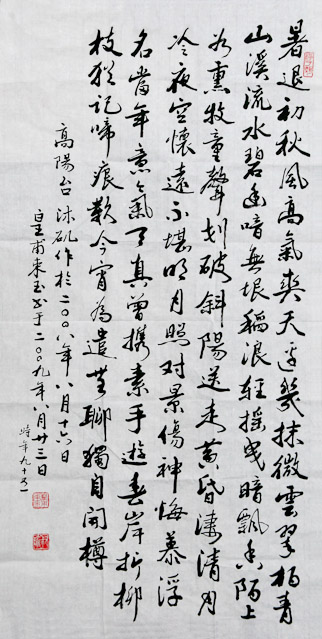 暑退初秋風高氣爽天邊幾抹微雲翠柏青
山溪流水碧幽喑無垠稻浪輕摇曳暗飄香陌上
如熏牧童聲划破斜陽送走黄昏凄清月
冷夜空懷遠不堪明月照对景傷神悔慕浮
名當年意氣了真曾携素手遊春岸折柳
枝犹記啼痕歎今宵為遣無聊獨自開樽
高陽台 沐矶作於二〇〇八年八月十六日
皇甫束玉书于二〇〇九年八月廿三日
時年九十一